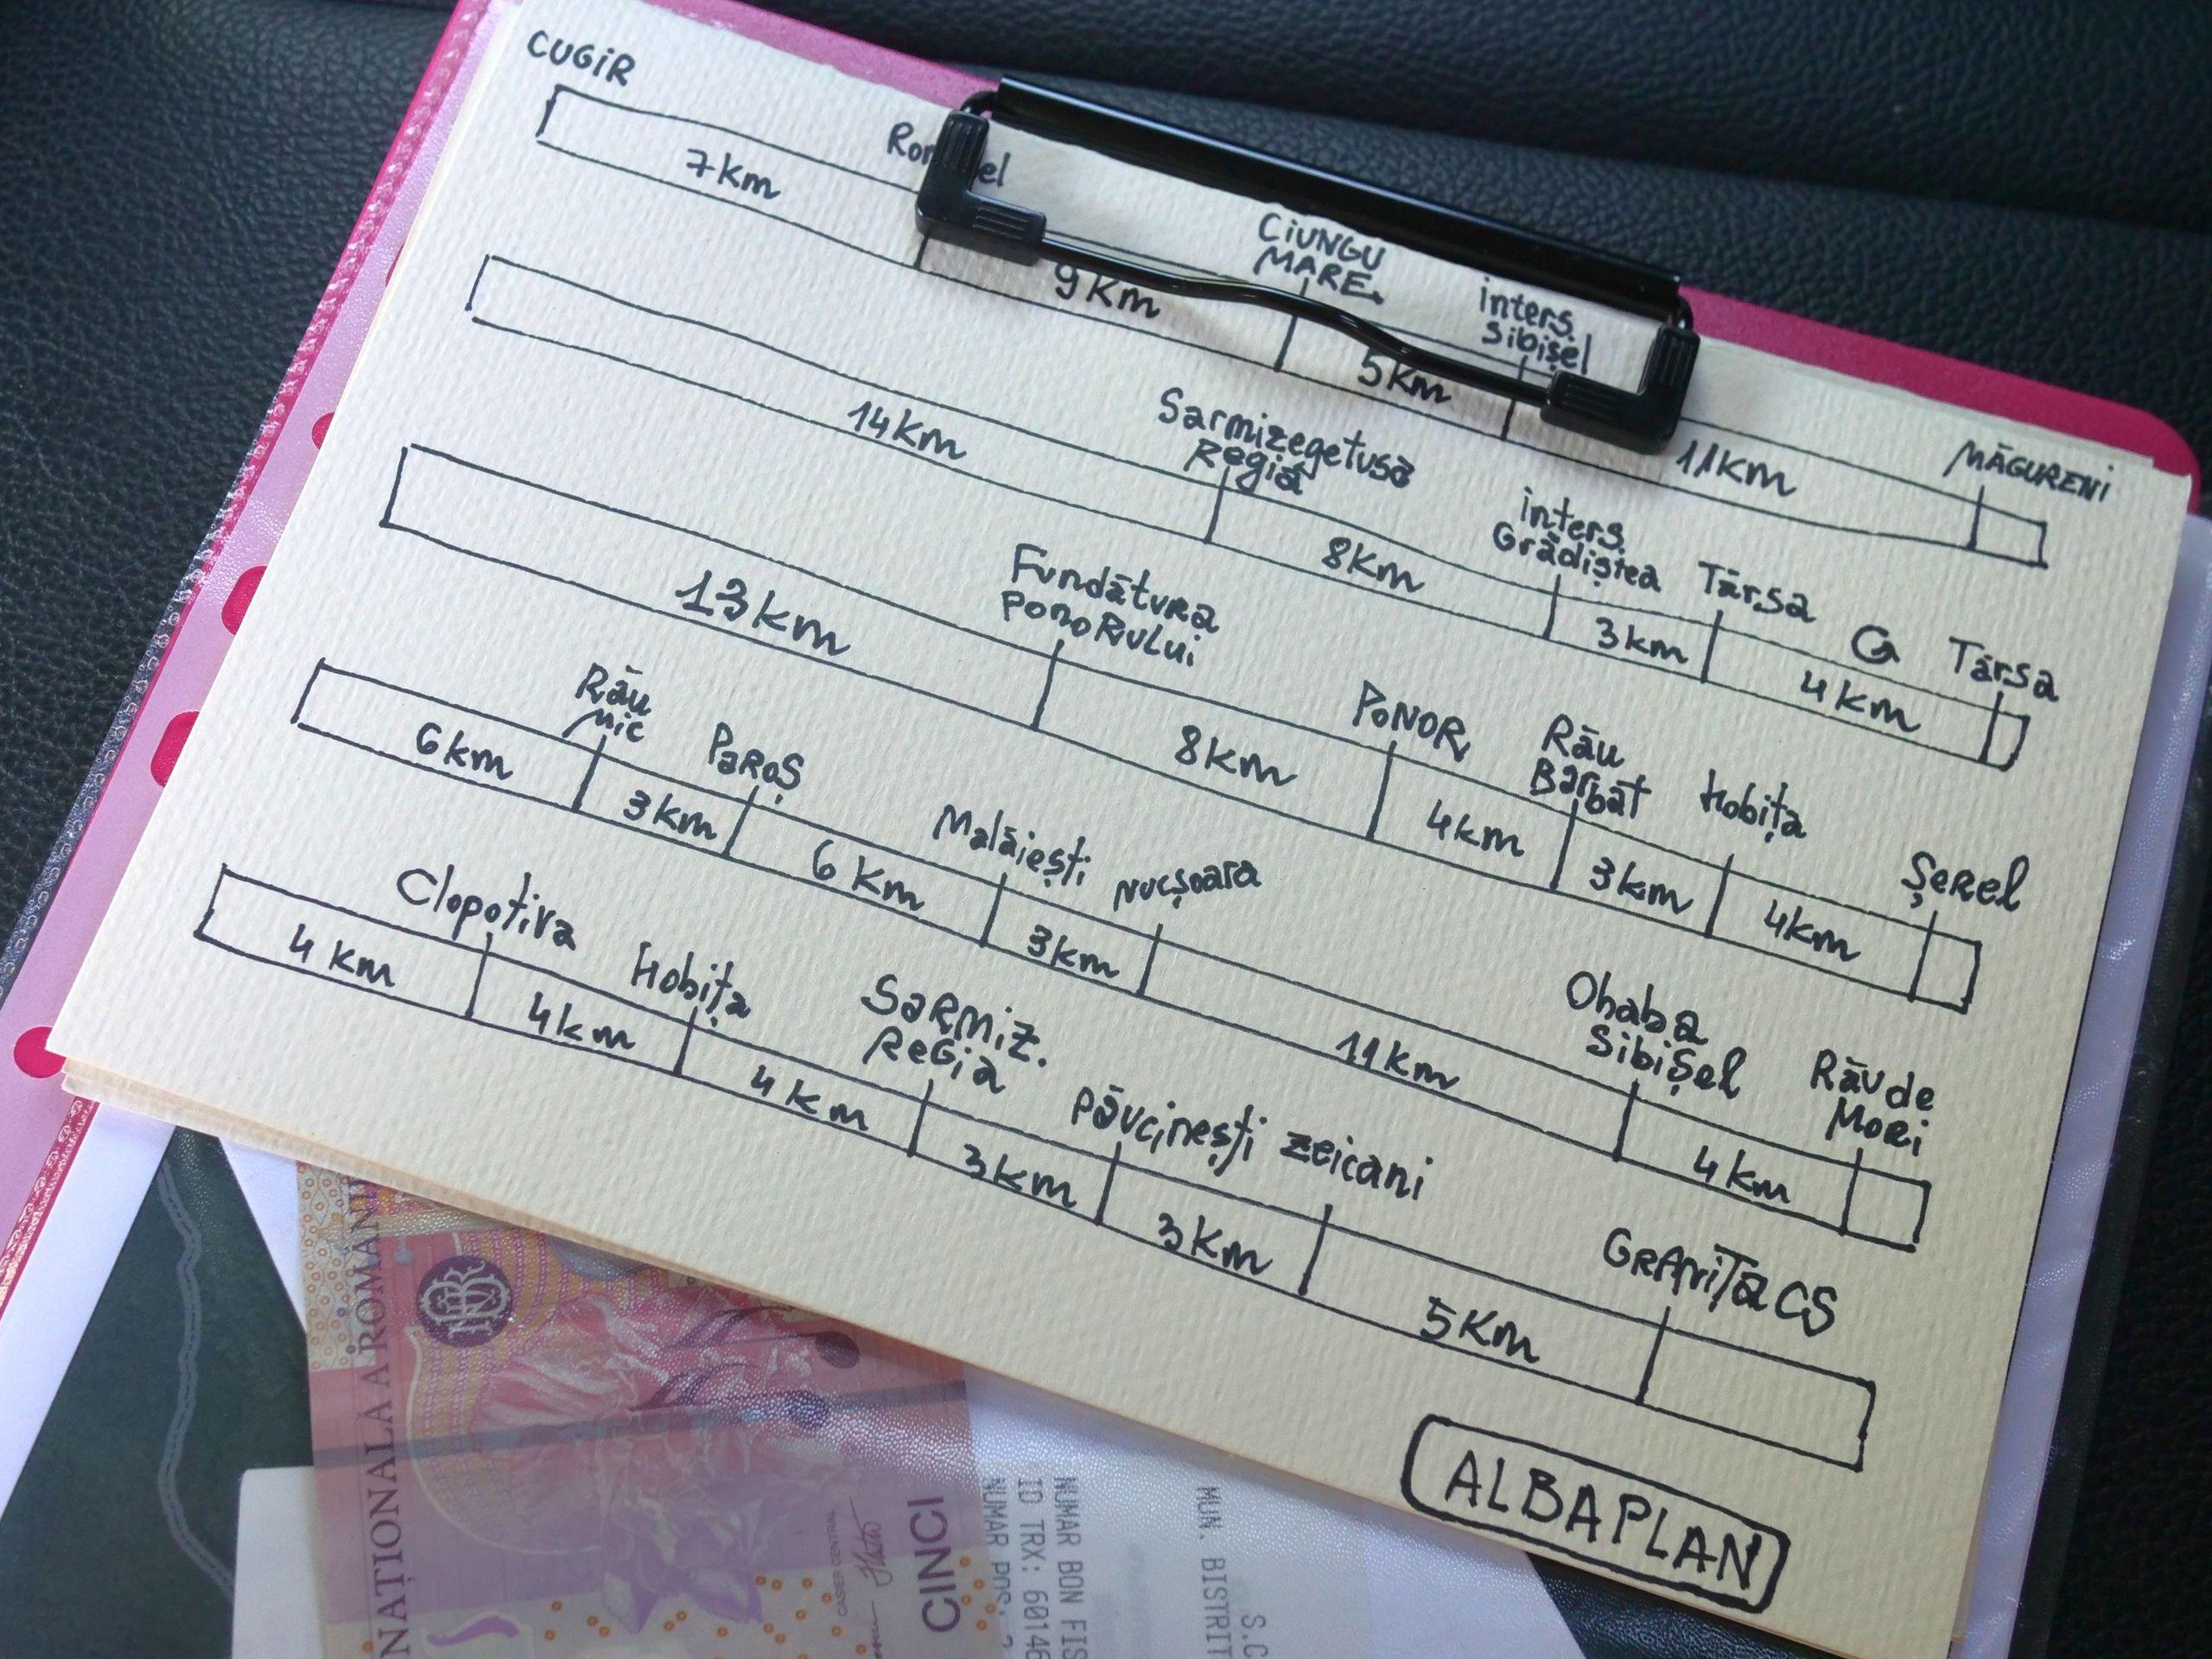 CUGIR
7km
9km
CIUNGU
MARE.
5km
inters
Sibișel
11km
MĂGURENI
14km
Sarmizegetusa
Regia
8km
inters
Grădiștea
3km
Târsa
4km
Târsa
13km
Fundătura
PONORului
8km
PONOR
4km
Râu
Bărbat
3km
Hobița
4km
Șerel
6km
Râu
Mic
3km
Paroș
6km
Malăiești
3km
Nucșoara
11km
Ohaba
Sibișel
4km
Râu de
Mori
4km
Clopotiva
4km
Hobița
4km
SARMIZ.
REGIA
3km
Păucinești
3km
Zeicani
5km
GRANIȚA CS
ALBAPLAN
NAȚIONALA A ROMÂNI
CASIER CENTRAL
CINCI
NUMAR BON FIS
ID TRX: 60146
NUMAR POS:
MUN. BISTRIT
S.C